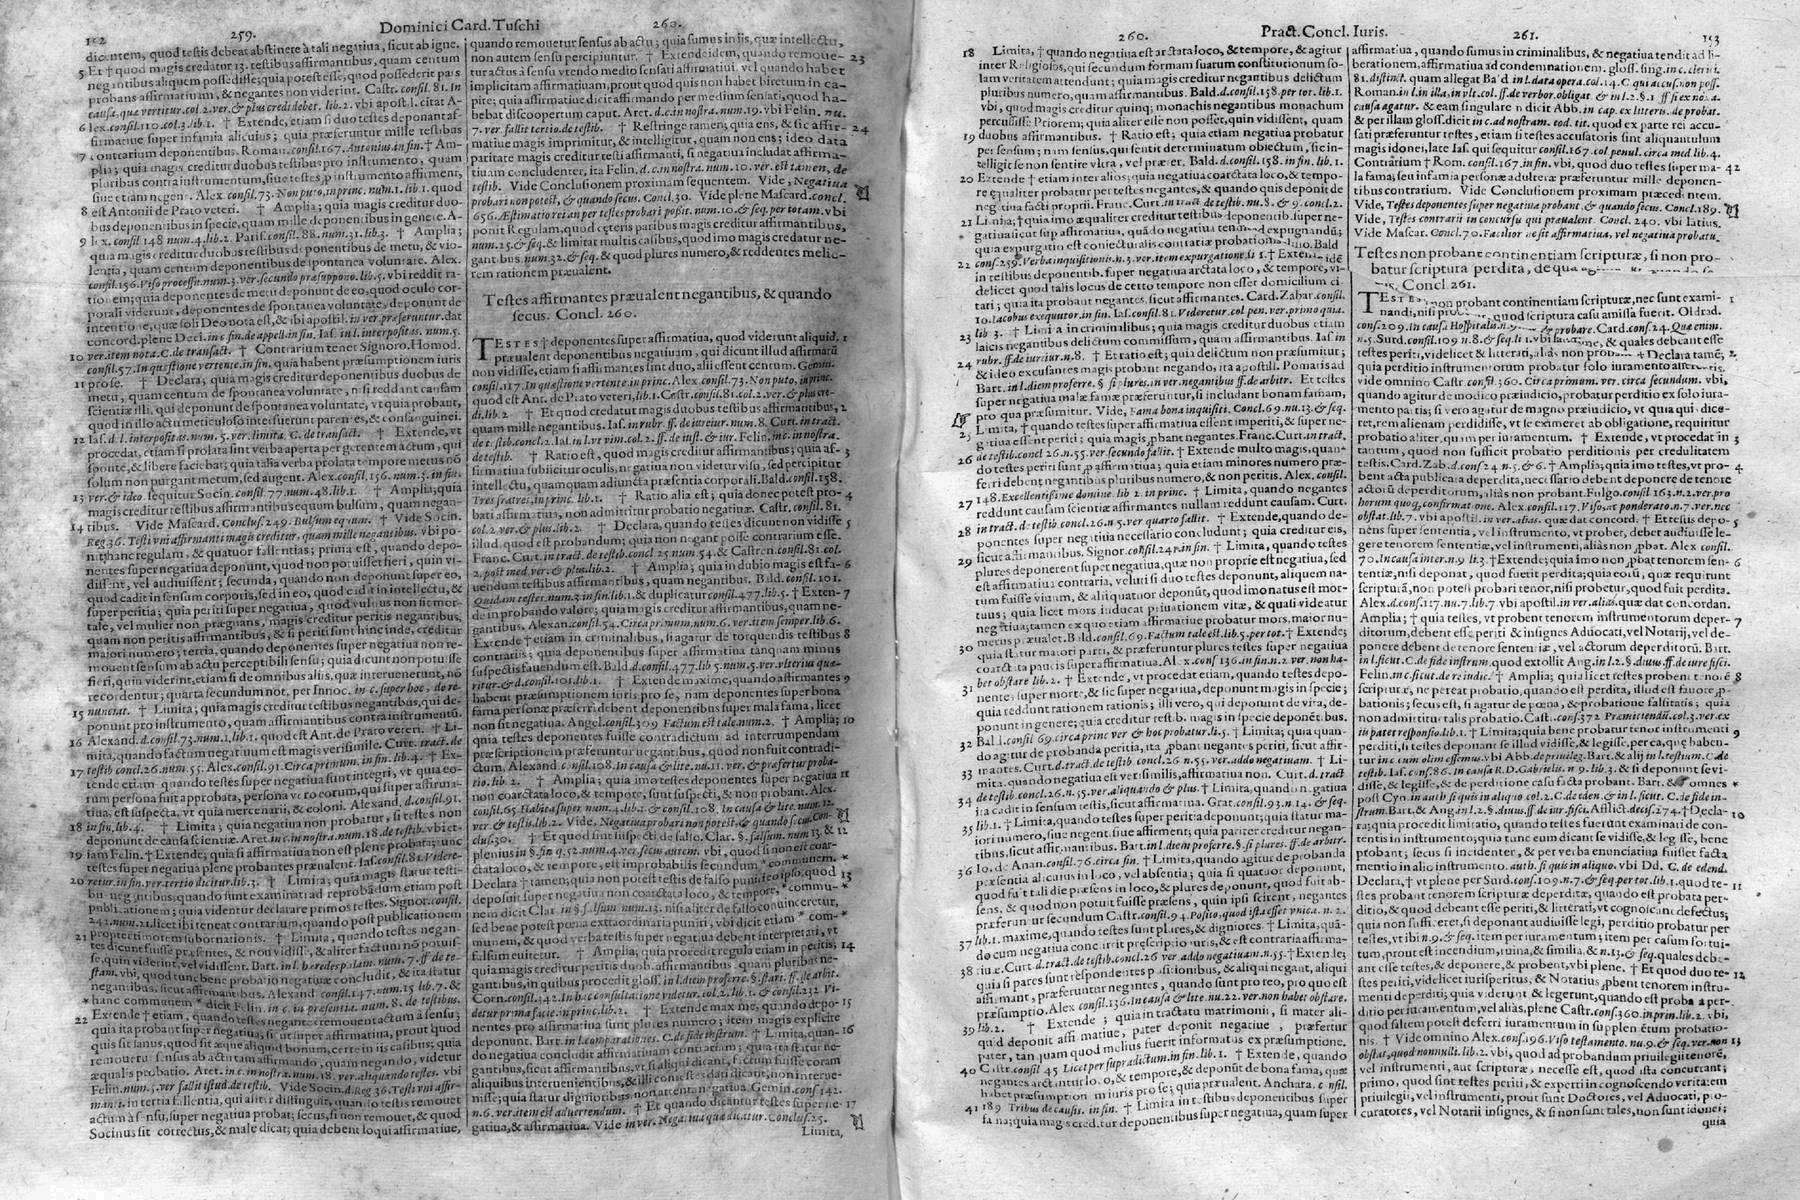 152
259.
Dominici Card. Tuschi
260.
dicentem, quod testis debeat abstinere à tali negatiua, sicut ab igne.
5 Et † quod magis creditur 13. testibus affirmantibus, quam centum
negantibus aliquem possedisse; quia potest esse, quod possederit pars
probans affirmatiuam, & negantes non viderint. Castr. consil. 81. In
causa, quæ vertitur. col. 2. ver. & plus credi debet. lib. 2. vbi apostil. citat A-
6 lex. consil. 110. col. 3. lib. 1. † Extende, etiam si duo testes deponant af-
firmatiue super infamia alicuius; quia præferuntur mille testibus
7 contrarium deponentibus. Roman. consil. 167. Antonius in fin. † Am-
plia; quia magis creditur duobus testibus pro instrumento, quam
pluribus contra instrumentum, siue testes, p instrumento affirment,
siue etiam negent. Alex. consil. 73. Non puto, in princ. num. 1. lib. 1. quod
8 est Antonii de Prato veteri. † Amplia; quia magis creditur duo-
bus deponentibus in specie, quam mille deponentibus in genere. A-
9 lex. consil. 148 num. 4. lib. 2. Paris. consil. 88. num. 31. lib. 3. † Amplia;
quia magis creditur duobus testibus deponentibus de metu, & vio-
lentia, quam centum deponentibus de spontanea voluntate. Alex.
consil. 156. Viso processu. num. 3. ver. secundo præsuppono. lib. 5. vbi reddit ra-
tionem; quia deponentes de metu deponunt de eo, quod oculo cor-
porali viderunt, deponentes de spontanea voluntate, deponunt de
intentione, quæ soli Deo nota est, & ibi apostil. in ver. præferuntur. dat
concord. plene Deci. in c. fin. de appell. in fin. Ias. in l. interpositas. num. 5.
10 ver. item nota. C. de transact. † Contrarium tenet Signoro. Homod.
consil. 57. In quæstione vertente. in fin. quia habent præsumptionem iuris
11 pro se. † Declara; quia magis creditur deponentibus duobus de
metu, quam centum de spontanea voluntate, nisi reddant causam
scientiæ illi, qui deponunt de spontanea voluntate, vt quia probant,
quod in illo actu meticuloso interfuerunt parentes, & consanguinei.
12 Ias. d. l. interpositas. num. 5. ver. limita. C. de transact. † Extende, vt
procedat, etiam si prolata sint verba aperta per gerentem actum, qui
sponte, & libere faciebat; quia talia verba prolata tempore metus nō
solum non purgant metum, sed augent. Alex. consil. 156. num. 3. in fin.
13 ver. & ideo. sequitur Socin. consil. 77. num. 48. lib. 1. † Amplia; quia
magis creditur testibus affirmantibus equum bulsum, quam negan-
14 tibus. Vide Mascard. Conclus. 249. Bulsum equum. † Vide Socin.
Reg. 36. Testi vni affirmanti magis creditur, quam mille negantibus. vbi po-
nit hanc regulam, & quatuor fallentias; prima est, quando depo-
nentes super negatiua deponunt, quod non potuisset fieri, quin vi-
dissent, vel audiuissent; secunda, quando non deponunt super eo,
quod cadit in sensum corporis, sed in eo, quod cadit in intellectu, &
super peritia; quia periti super negatiua, quod vulnus non sit mor-
tale, vel mulier non prægnans, magis creditur peritis negantibus,
quam non peritis affirmantibus, & si periti sunt hinc inde, creditur
maiori numero; tertia, quando deponentes super negatiua non re-
mouent sensum ab actu perceptibili sensu; quia dicunt non potuisse
fieri, quin viderint, etiam si de omnibus aliis, quæ interuenerunt, nō
recordentur; quarta secundum not. per Innoc. in c. super hoc, de re-
15 nunciat. † Limita; quia magis creditur testibus negantibus, qui de-
ponunt pro instrumento, quam affirmantibus contra instrumentū.
Alexand. d. consil. 73. num. 1. lib. 1. quod est Ant. de Prato veteri. † Li-
16 mita, quando factum negatiuum est magis verisimile. Curt. tract. de
testib. concl. 26. num. 55. Alex. consil. 91. Circa primum. in fin. lib. 4. † Ex-
17 tende etiam quando testes super negatiua sunt integri, vt quia eo-
rum persona sit approbata, persona vero eorum, qui super affirma-
tiua, est suspecta, vt quia mercenarii, & coloni. Alexand. d. consil. 91.
18 in fin. lib. 4. † Limita; quia negatiua non probatur, si testes non
deponunt de causa scientiæ. Aret. in c. in nostra. num. 18. de testib. vbi et-
19 iam Felin. † Extende; quia si affirmatiua non est plene probata; tunc
testes super negatiua plene probantes præferuntur. Ias. consil. 81. Videre-
20 retur. in fin. ver. tertio dicitur. lib. 3. † Limita; quia magis statur testi-
bus negantibus, quando sunt examinati ad reprobādum etiam post
publicationem; quia videntur declarare primos testes. Signor. consil.
242. num. 21. licet ibi teneat contrarium, quando post publicationem
21 propter timorem subornationis. † Limita, quando testes negan-
tes dicunt fuisse præsentes, & non vidisse, & aliter factum nō potuis-
se, quin viderint, vel vidissent. Bart. in l. heredes palam. num. 7. ff. de te-
stam. vbi, quod tunc bene probatio negatiuæ concludit, & ita statur
negantibus, sicut affirmantibus. Alexand. consil. 147. num. 15. lib. 7. &
* hanc communem * dicit Felin. in c. in præsentia. num. 8. de testibus.
22 Extende † etiam, quando testes negantes remouent actum à sensu;
quia ita probant super negatiua, sicut super affirmatiua, prout quod
quis sit sanus, quod sit æque aliquid bonum, certe in iis casibus; quia
remouetur sensus ab actu tam affirmando, quam negando, videtur
æqualis probatio. Aret. in c. in nostra. num. 18. ver. aliquando testes. vbi
Felin. num. 5. ver. fallit istud. de testib. Vide Socin. d. Reg. 36. Testi vni affir-
manti. in tertia fallentia, qui aliter distinguit, quando testis remouet
actum à sensu, super negatiua probat; secus, si non remouet, & quod
Socinus sit correctus, & male dicat; quia debent loqui affirmatiue,
quando remouetur sensus ab actu; quia sumus in iis, quæ intellectu,
non autem sensu percipiuntur. † Extende idem, quando remoue- 23
tur actus à sensu vtendo medio sensati affirmatiui, vel quando habet
implicitam affirmatiuam, prout quod quis non habet biretum in ca-
pite; quia affirmatiue dicit affirmando per medium sensati, quod ha-
bebat discoopertum caput. Aret. d. c. in nostra. num. 19. vbi Felin. nu.
7. ver. fallit tertio. de testib. † Restringe tamen; quia ens, & sic affir- 24
matiue magis imprimitur, & intelligitur, quam non ens; ideo data
paritate magis creditur testi affirmanti, si negatiua includat affirma-
tiuam concludenter, ita Felin. d. c. in nostra. num. 10. ver. est tamen, de
testib. Vide Conclusionem proximam sequentem. Vide, Negatiua
probari non potest, & quando secus. Concl. 30. Vide plene Mascard. concl.
656. Æstimatio rei an per testes probari possit. num. 10. & seq. per totam. vbi
ponit Regulam, quod cęteris paribus magis creditur affirmantibus,
num. 25. & seq. & limitat multis casibus, quod imo magis creditur ne-
gantibus. num. 32. & seq. & quod plures numero, & reddentes melio-
rem rationem præualent.
Testes affirmantes præualent negantibus, & quando
secus. Concl. 260.
TESTES † deponentes super affirmatiua, quod viderunt aliquid, 1
præualent deponentibus negatiuam, qui dicunt illud affirmatū
non vidisse, etiam si affirmantes sint duo, alii essent centum. Gemin.
consil. 117. In quæstione vertente in princ. Alex. consil. 73. Non puto, in princ.
quod est Ant. de Prato veteri, lib. 1. Castr. consil. 81. col. 2. ver. & plus cre-
di. lib. 2 † Et quod credatur magis duobus testibus affirmantibus, 2
quam mille negantibus. Ias. in rubr. ff. de iureiur. num. 8. Curt. in tract.
de testib. concl. 2. Ias. in l. vt vim. col. 2. ff. de iust. & iur. Felin. in c. in nostra.
de testib. † Ratio est, quod magis creditur affirmantibus; quia af- 3
firmatiua subiicitur oculis, negatiua non videtur visu, sed percipitur
intellectu, quamquam adiuncta præsentia corporali. Bald. consil. 158.
Tres fratres, in princ. lib. 1. † Ratio alia est; quia donec potest pro- 4
bari affirmatiua, non admittitur probatio negatiuæ. Castr. consil. 81.
col. 2. ver. & plus. lib. 2. † Declara, quando testes dicunt non vidisse 5
illud, quod est probandum; quia non negant posse contrarium esse.
Franc. Curt. in tract. de testib. concl. 25 num. 54. & Castren. consil. 81. col.
2. post med. ver. & plus. lib. 2. † Amplia; quia in dubio magis est fa- 6
uendum testibus affirmantibus, quam negantibus. Bald. consil. 101.
Quidam testes. num. 3. in fin. lib. 1. & duplicatur consil. 477. lib. 5. † Exten- 7
de in probando valore; quia magis creditur affirmantibus, quam ne-
gantibus. Alexan. consil. 54. Circa primum. num. 6. ver. item semper. lib. 6.
Extende † etiam in criminalibus, si agatur de torquendis testibus 8
contrariis; quia deponentibus super affirmatiua tanquam minus
suspectis fauendum est. Bald. d. consil. 477. lib 5. num. 5. ver. vlterius quæ-
ritur. & d. consil. 101. lib. 1. † Extende maxime, quando affirmantes 9
habent præsumptionem iuris pro se, nam deponentes super bona
fama personæ præferri debent deponentibus super mala fama, licet
non sit negatiua. Angel. consil. 309 Factum est tale. num. 2. † Amplia; 10
quia testes deponentes fuisse contradictum ad interrumpendam
præscriptionem præferuntur negantibus, quod non fuit contradi-
ctum. Alexand. consil. 108. In causa & lite. nu. 11. ver. & præfertur proba-
tio. lib. 2. † Amplia; quia imo testes deponentes super negatiua 11
non coarctata loco, & tempore, sunt suspecti, & non probant. Alex.
consil. 65. Habita super. num. 4. lib. 1. & consil. 108. In causa & lite. num. 12.
ver. & testis. lib. 2. Vide, Negatiua probari non potest, & quando secus. Con-
clus. 30. † Et quod sint suspecti de falso. Clar. §. falsum. num. 13. & 12
plenius in §. fin. q. 52. num. 4. ver. secus autem. vbi, quod si non est coar-
ctata loco, & tempore, est improbabilis secundum * communem. *
Declara † tamen; quia non potest testis de falso puniri eo ipso, quod 13
deposuit super negatiua non coarctata loco, & tempore, * commu- *
nem dicit Clar. in §. falsum. num. 13. nisi aliter de falso conuinceretur,
sed bene potest pœna extraordinaria puniri, vbi dicit etiam * com- *
munem, & quod verba testis super negatiua debent interpretari, vt
falsum euitetur. † Amplia; quia procedit regula etiam in peritis, 14
quia magis creditur peritis duob. affirmantibus, quam pluribus ne-
gantibus, in quibus procedit gloss. in l. diem proferre. §. stari. ff. de arbit.
Corn. consil. 142. In hac consultatione videtur. col. 2. lib. 1. & consil. 232. Vi-
detur prima facie. in princ. lib. 2. † Extende maxime, quando depo- 15
nentes pro affirmatiua sunt plures numero; item magis explicite
deponunt. Bart. in l. comparationes. C. de fide instrum. † Limita, quan- 16
do negatiua concludit affirmatiuam contrariam; quia ita statur ne-
gantibus, sicut affirmantibus, vt si aliqui dicant, factum fuisse coram
aliquibus interuenientibus, & illi contestes dati dicant, non interue-
nisse; quia statur dignioribus, non attenta negatiua. Gemin. cons. 142.
n. 6. ver. item est aduertendum. † Et quando dicantur testes super ne- 17
gatiua, & affirmatiua. Vide in ver. Negatiua quæ dicatur. Conclus. 25.
Limita,
260.
Pract. Concl. Iuris.
261.
153
18 Limita, † quando negatiua est arctata loco, & tempore, & agitur
inter Religiosos, qui secundum formam suarum constitutionum so-
lam veritatem attendunt; quia magis creditur negantibus delictum
pluribus numero, quam affirmantibus. Bald. d. consil. 158. per tot. lib. 1.
vbi, quod magis creditur quinque monachis negantibus monachum
percussisse Priorem; quia aliter esse non posset, quin vidissent, quam
19 duobus affirmantibus. † Ratio est; quia etiam negatiua probatur
per sensum; nam sensus, qui sentit determinatum obiectum, sic in-
telligit se non sentire vltra, vel præter. Bald. d. consil. 158. in fin. lib. 1.
20 Extende † etiam inter alios; quia negatiua coarctata loco, & tempo-
re ęqualiter probatur per testes negantes, & quando quis deponit de
negatiua facti proprii. Franc. Curt. in tract. de testib. nu. 8. & 9. concl. 2.
21 Limita; † quia imo æqualiter creditur testibus deponentib. super ne-
gatiua, sicut super affirmatiua, quādo negatiua tendit ad expugnandū;
quia expurgatio est coniecturalis contrariæ probationis Bald.
22 cons. 259. Verba inquisitionis. n. 3. ver. item expurgatio. li 1. † Extende idē
in testibus deponentib. super negatiua arctata loco, & tempore, vi-
delicet quod talis locus de certo tempore non esset domicilium ci-
tati; quia ita probant negantes, sicut affirmantes. Card. Zabar. consil.
10. Iacobus exequutor. in fin. Ias. consil. 81. Videretur. col. pen. ver. primo quia.
lib 3. † Limita in criminalibus; quia magis creditur duobus etiam
23 laicis negantibus delictum commissum, quam affirmantibus. Ias. in
rubr. ff. de iureiur. n. 8. † Et ratio est; quia delictum non præsumitur,
24 & ideo excusantes magis probant negando, ita apostil. Pomaris ad
Bart. in l. diem proferre. § si plures. in ver. negantibus ff. de arbitr. Et testes
super negatiua malæ famæ præferuntur, si includant bonam famam,
pro qua præsumitur. Vide, Fama bona inquisiti. Concl. 69. nu. 13. & seq.
25 Limita, † quando testes super affirmatiua essent imperiti, & super ne-
gatiua essent periti; quia magis ꝓbant negantes. Franc. Curt. in tract.
26 de testib. concl. 26. n. 55. ver. secundo fallit. † Extende multo magis, quan-
do testes periti sunt ꝓ affirmatiua; quia etiam minores numero præ-
ferri debent negantibus pluribus numero, & non peritis. Alex. consil.
27 148. Excellentissime domine. lib 2. in princ. † Limita, quando negantes
reddunt causam scientiæ affirmantes nullam reddunt causam. Curt.
28 in tract. de testib. concl. 26. n. 5. ver. quarto fallit. † Extende, quando de-
ponentes super negatiua necessario concludunt; quia creditur eis,
sicut affirmantibus. Signor. consil. 241. in fin. † Limita, quando testes
29 plures deponerent super negatiua, quæ non proprie est negatiua, sed
est affirmatiua contraria, veluti si duo testes deponunt, aliquem na-
tum fuisse viuum, & aliquatuor deponūt, quod imo natus est mor-
tuus; quia licet mors inducat priuationem vitæ, & quasi videatur
negatiua; tamen ex quo etiam affirmatiue probatur mors, maior nu-
merus præualet. Bald. consil. 69. Factum tale est. lib. 5. per tot. † Extende;
30 quia statur maiori parti, & præferuntur plures testes super negatiua
coarctata paucis super affirmatiua. Alex. cons. 136. in fin. n. 2 ver. non ha-
bet obstare lib. 2. † Extende, vt procedat etiam, quando testes depo-
31 nentes super morte, & sic super negatiua, deponunt magis in specie;
quia reddunt rationem rationis; illi vero, qui deponunt de vita, de-
ponunt in genere; quia creditur testib. magis in specie deponētibus.
Bald. consil 69. circa princ ver & hoc probatur. li. 5. † Limita; quia quan-
32 do agitur de probanda peritia, ita ꝓbant negantes periti, sicut affir-
33 mantes. Curt. d. tract. de testib. concl. 26 n. 55. ver. addo negatiuam. † Li-
mita, quando negatiua est verisimilis, affirmatiua non. Curt. d. tract
34 de testib. concl. 26. n. 35. ver. aliquando & plus. † Limita, quando negatiua
ita cadit in sensum testis, sicut affirmatiua. Grat. consil. 93. n. 14. & seq.
35 lib. 1. † Limita, quando testes super peritia deponunt; quia statur ma-
iori numero, siue negent, siue affirment; quia pariter creditur negan-
tibus, sicut affirmantibus. Bart. in l. diem proferre. §. si plures. ff. de arbitr.
36 Io. de Anan. cons. 76. circa fin. † Limita, quando agitur de probanda
præsentia alicuius in loco, vel absentia; quia si quatuor deponunt,
quod fuit talis die præsens in loco, & plures deponunt, quod fuit ab-
sens, & quod non potuit fuisse præsens, quin ipsi scirent, negantes
præferuntur secundum Castr. consil. 94. Posito, quod ista esset vnica. n. 2.
37 lib. 1. maxime, quando testes sunt plures, & digniores. † Limita, quā-
do cum negatiua concurrit præscriptio iuris, & est contraria affirma-
38 tiuæ. Curt. d. tract. de testib. concl. 26 ver. addo negatiuam. n. 55. † Extende;
quia si pares sunt respondentes positionibus, & aliqui negant, aliqui
affirmant, præferuntur negantes, quando sunt pro reo, pro quo est
præsumptio. Alex consil. 136. In causa & lite. nu. 22. ver. non habet obstare.
39 lib. 2. † Extende; quia in tractatu matrimonii, si mater ali-
quid deponit affirmatiue, pater deponit negatiue, præfertur
pater, tanquam quod melius fuerit informatus ex præsumptione.
Castr. consil 45 Licet per supradictum. in fin. lib. 1. † Extende, quando
40 negantes arctantur loco, & tempore, & deponūt de bona fama, quæ
habent præsumptionem iuris pro se; quia præualent. Anchara. consil.
41 189 Tribus de causis. in fin. † Limita in testibus deponentibus super
fama; quia magis creditur deponentibus super negatiua, quam super
affirmatiua, quando sumus in criminalibus, & negatiua tendit ad li-
berationem, affirmatiua ad condemnationem. gloss. sing. in c. clerici.
81. distinct. quam allegat Bald in l. data opera. col. 14. C. qui accus. non poss.
Roman. in l. in illa, in vlt. col. ff. de verbor. obligat. & in l. 2. §. 1. ff si ex noxa.
causa agatur. & eam singulare n dicit Abb. in cap. ex literis. de probat.
& per illam gloss. dicit in c. ad nostram. eod. tit. quod ex parte rei accu-
sati præferuntur testes, etiam si testes accusatoris sint aliquantulum
magis idonei, late Ias. qui sequitur consil. 167 col penul. circa med lib. 4.
Contrarium † Rom. consil. 167. in fin. vbi, quod duo testes super ma- 42
la fama; seu infamia personæ adulteræ præferuntur mille deponen-
tibus contrarium. Vide Conclusionem proximam præcedentem.
Vide, Testes deponentes super negatiua probant, & quando secus. Concl. 189.
Vide, Testes contrarii in concursu qui præualent. Concl. 240. vbi latius.
Vide Mascar. Concl. 70. Facilior ne sit affirmatiua, vel negatiua probatu.
Testes non probant continentiam scripturæ, si non pro-
batur scriptura perdita, de qua
Concl. 261.
TESTES non probant continentiam scripturæ, nec sunt exami- 1
nandi, nisi probetur, quod scriptura casu amissa fuerit. Oldrad.
cons. 209. In causa Hospitalis. n. & probare. Card. cons. 24. Quæ enim.
n. 5. Surd. consil. 109 n. 8. & seq. li 1. vbi & quales debeant esse
testes periti, videlicet & litterati, aliàs non probant † Declara tamē; 2
quia perditio instrumentorum probatur solo iuramento asserentis.
vide omnino Castr consil. 360. Circa primum. ver. circa secundum. vbi,
quando agitur de modico præiudicio, probatur perditio ex solo iura-
mento partis; si vero agatur de magno præiudicio, vt quia qui dice-
ret, rem alienam perdidisse, vt se eximeret ab obligatione, requiritur
probatio aliter, quam per iuramentum. † Extende, vt procedat in 3
quantum, quod non sufficit probatio perditionis per credulitatem
testis. Card. Zab. d. cons. 24 n. 5. & 6. † Amplia; quia imo testes, vt pro- 4
bent acta publica deperdita, necessario debent deponere de tenore
actorū deperditorum, aliàs non probant. Fulgo. consil. 163. n. 2. ver. pro
horum quoque, confirmatione. Alex. consil. 117. Viso, at ponderato. n. 7. ver. nec
obstat. lib. 7. vbi apostil. in ver. alias. quæ dat concord. † Et testis depo- 5
nens super sententia, vel instrumento, vt probet, debet audiuisse le-
gere tenorem sententiæ, vel instrumenti, aliàs non ꝓbat. Alex. consil.
70. In causa inter. n. 9 li. 3. † Extende; quia imo non ꝓbat tenorem sen- 6
tentiæ, nisi deponat, quod fuerit perdita; quia eo ū, quæ requirunt
scripturā, non potest probari tenor, nisi probetur, quod fuit perdita.
Alex. d. cons. 117. nu. 7. lib. 7. vbi apostil. in ver. alias. quæ dat concordan.
Amplia; † quia testes, vt probent tenorem instrumentorum deper- 7
ditorum, debent esse periti & insignes Aduocati, vel Notarij, vel de-
ponere debent de tenore sententiæ, vel actorum deperditorum. Bart.
in l. sicut. C. de fide instrum. quod extollit Ang. in l. 2. §. diuus. ff. de iure fisci.
Felin. in c. sicut. de re iudic. † Amplia; quia licet testes probent tenorē 8
scripturæ, ne pereat probatio, quando est perdita, illud est fauore, ꝓ-
bationis; secus est, si agatur de pœna, & probatione falsitatis; quia
non admittitur talis probatio. Cast. cons. 372 Præmittendū. col. 3. ver. ex
iis patet responsio. lib. 1. † Limita; quia bene probatur tenor instrumenti 9
perditi, si testes deponant se illud vidisse, & legisse, per ea, quæ haben-
tur in c. cum olim essemus. vbi Abb. de priuileg. Bart. & alij in l. testium. C. de
testib. Ias. cons. 86. In causa R. D. Gabrielis. n 9. lib. 3. & si deponunt se vi-
disse, & legisse, & de perditione casu facta probant. Bart. * & omnes *
post Cyn. in auth si quis in aliquo col. 2. C. de eden. & in l. sicut. C. de fide in-
strum. Bart. & Ang. in l. 2. §. diuus. ff. de iur. fisci, Afflict. decis. 274. † Decla- 10
ra; quia procedit limitatio, quando testes fuerunt examinati de con-
tentis in instrumento; quia tunc cum dicant se vidisse, & legisse, bene
probant; secus si incidenter, & per verba enunciatiua fuisset facta
mentio in alio instrumento. auth. si quis in aliquo. vbi Dd. C. de edend.
Declara, † vt plene per Surd. cons. 109. n. 7. & seq. per tot. lib. 1. quod te- 11
stes probant tenorem scripturæ deperditæ, quando est probata per-
ditio, & quod debeant esse periti, & litterati, vt cognoscant defectus;
quia non sufficeret, si deponant audiuisse legi, perditio probatur per
testes, vt ibi n. 9. & seq. item per iuramentum; item per casum fortui-
tum, prout incendium, ruina, & similia, & n. 13. & seq. quales debe-
ant esse testes, & deponere, & probent, vbi plene. † Et quod duo te- 12
stes periti, videlicet iurisperitus, & Notarius ꝓbent tenorem instru-
menti deperditi; quia viderunt & legerunt, quando est probata per-
ditio per iuramentum, vel aliàs, plene Castr. cons. 360. in prin. lib. 2. vbi,
quod saltem potest deferri iuramentum in supplementum probatio-
nis. † Vide omnino Alex. cons. 196. Viso testamento. nu. 9. & seq. ver. non 13
obstat, quod nonnulli. lib. 2. vbi, quod ad probandum priuilegii tenorē,
vel instrumenti, aut scripturæ, necesse est, quod ista concurrant;
primo, quod sint testes periti, & experti in cognoscendo veritatem
priuilegii, vel instrumenti, prout sunt Doctores, vel Aduocati, pro-
curatores, vel Notarii insignes, & si non sunt tales, non sunt idonei;
quia